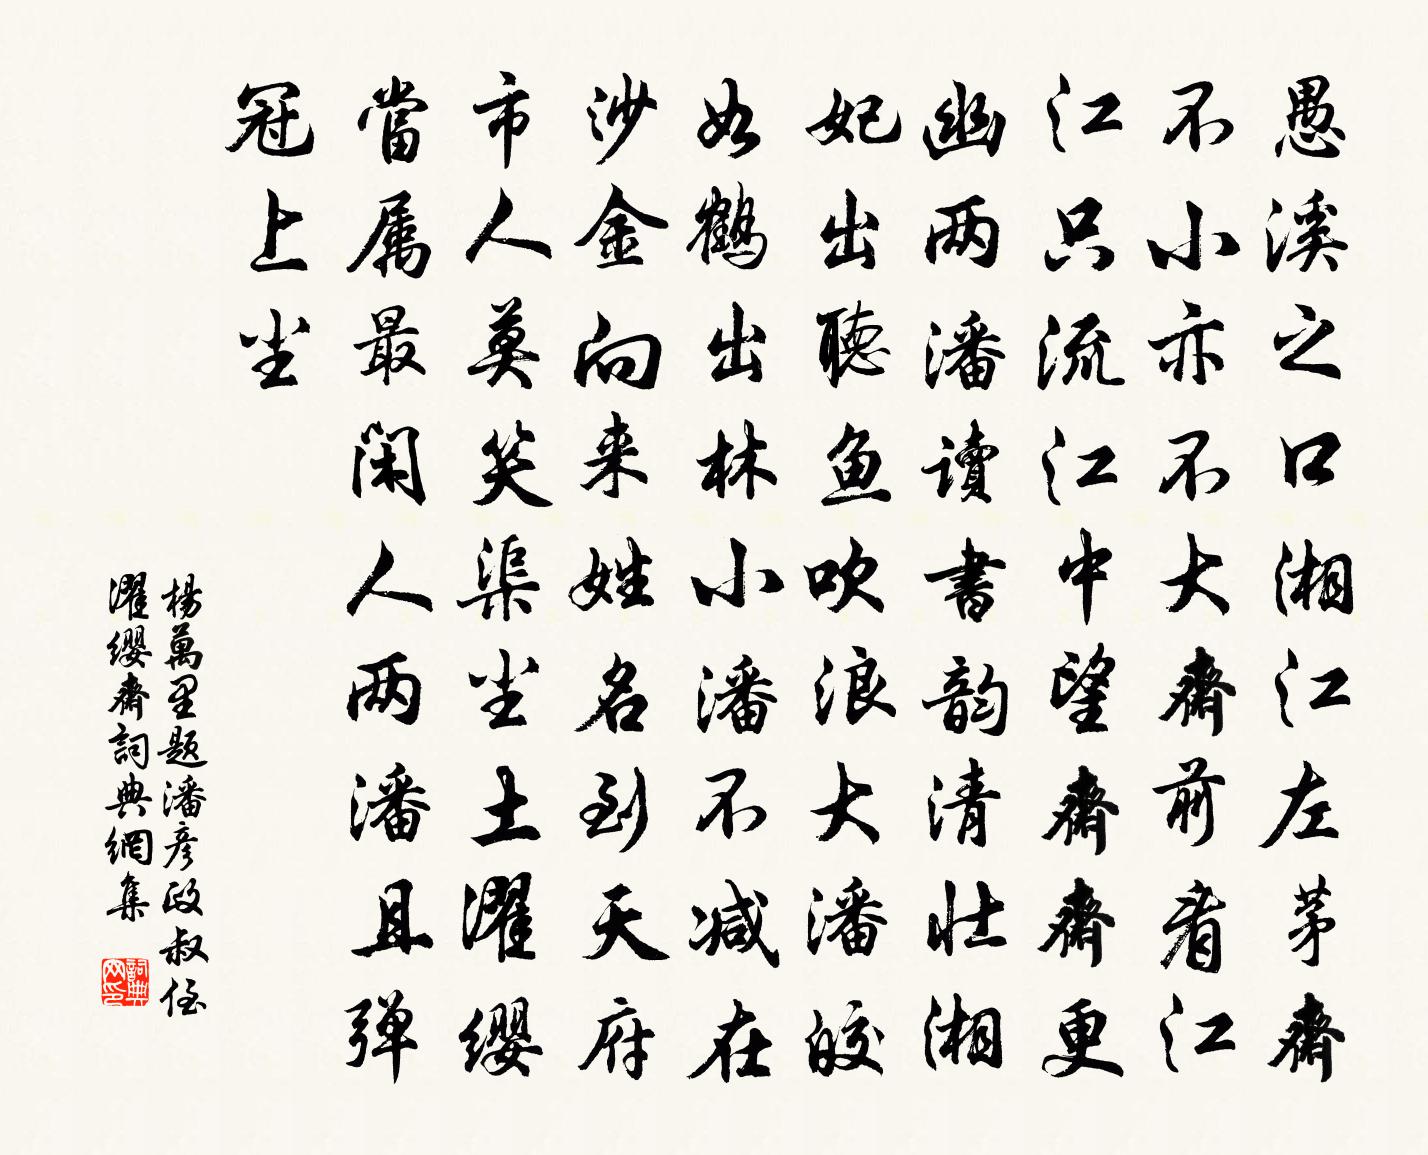 愚溪之口湘江左茅齋
不小亦不大齋前看江
江只流江中望齋齋更
幽两潘讀書韵清壮湘
妃出聽魚吹浪大潘皎
如鶴出林小潘不减在
沙金向来姓名到天府
市人莫笑渠尘土濯缨
當属最闲人两潘且弹
冠上尘
楊萬里题潘彦政叔侄
濯缨齋詞典網集
詞典网印